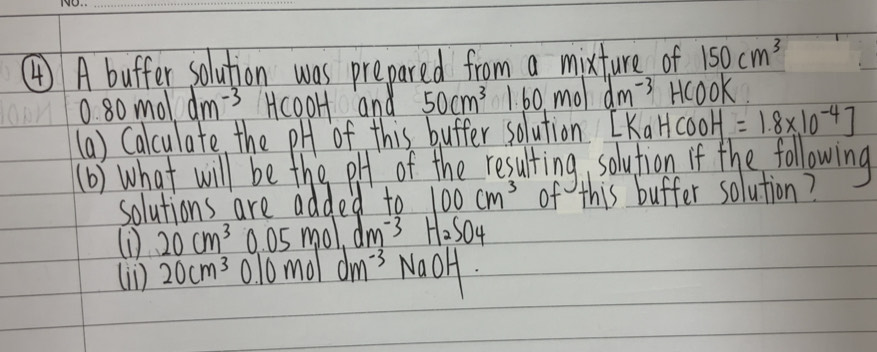 No..
④ A buffer solution was prepared from a mixture of 150 cm³
0.80 mol dm⁻³ HCOOH and 50cm³ 1.60 mol dm⁻³ HCOOK.
(a) Calculate the pH of this buffer solution [Ka HCOOH = 1.8×10⁻⁴]
(b) What will be the pH of the resulting solution if the following
solutions are added to 100 cm³ of this buffer solution?
(i) 20 cm³ 0.05 mol dm⁻³ H₂SO₄
(ii) 20cm³ 0.10 mol dm⁻³ NaOH.